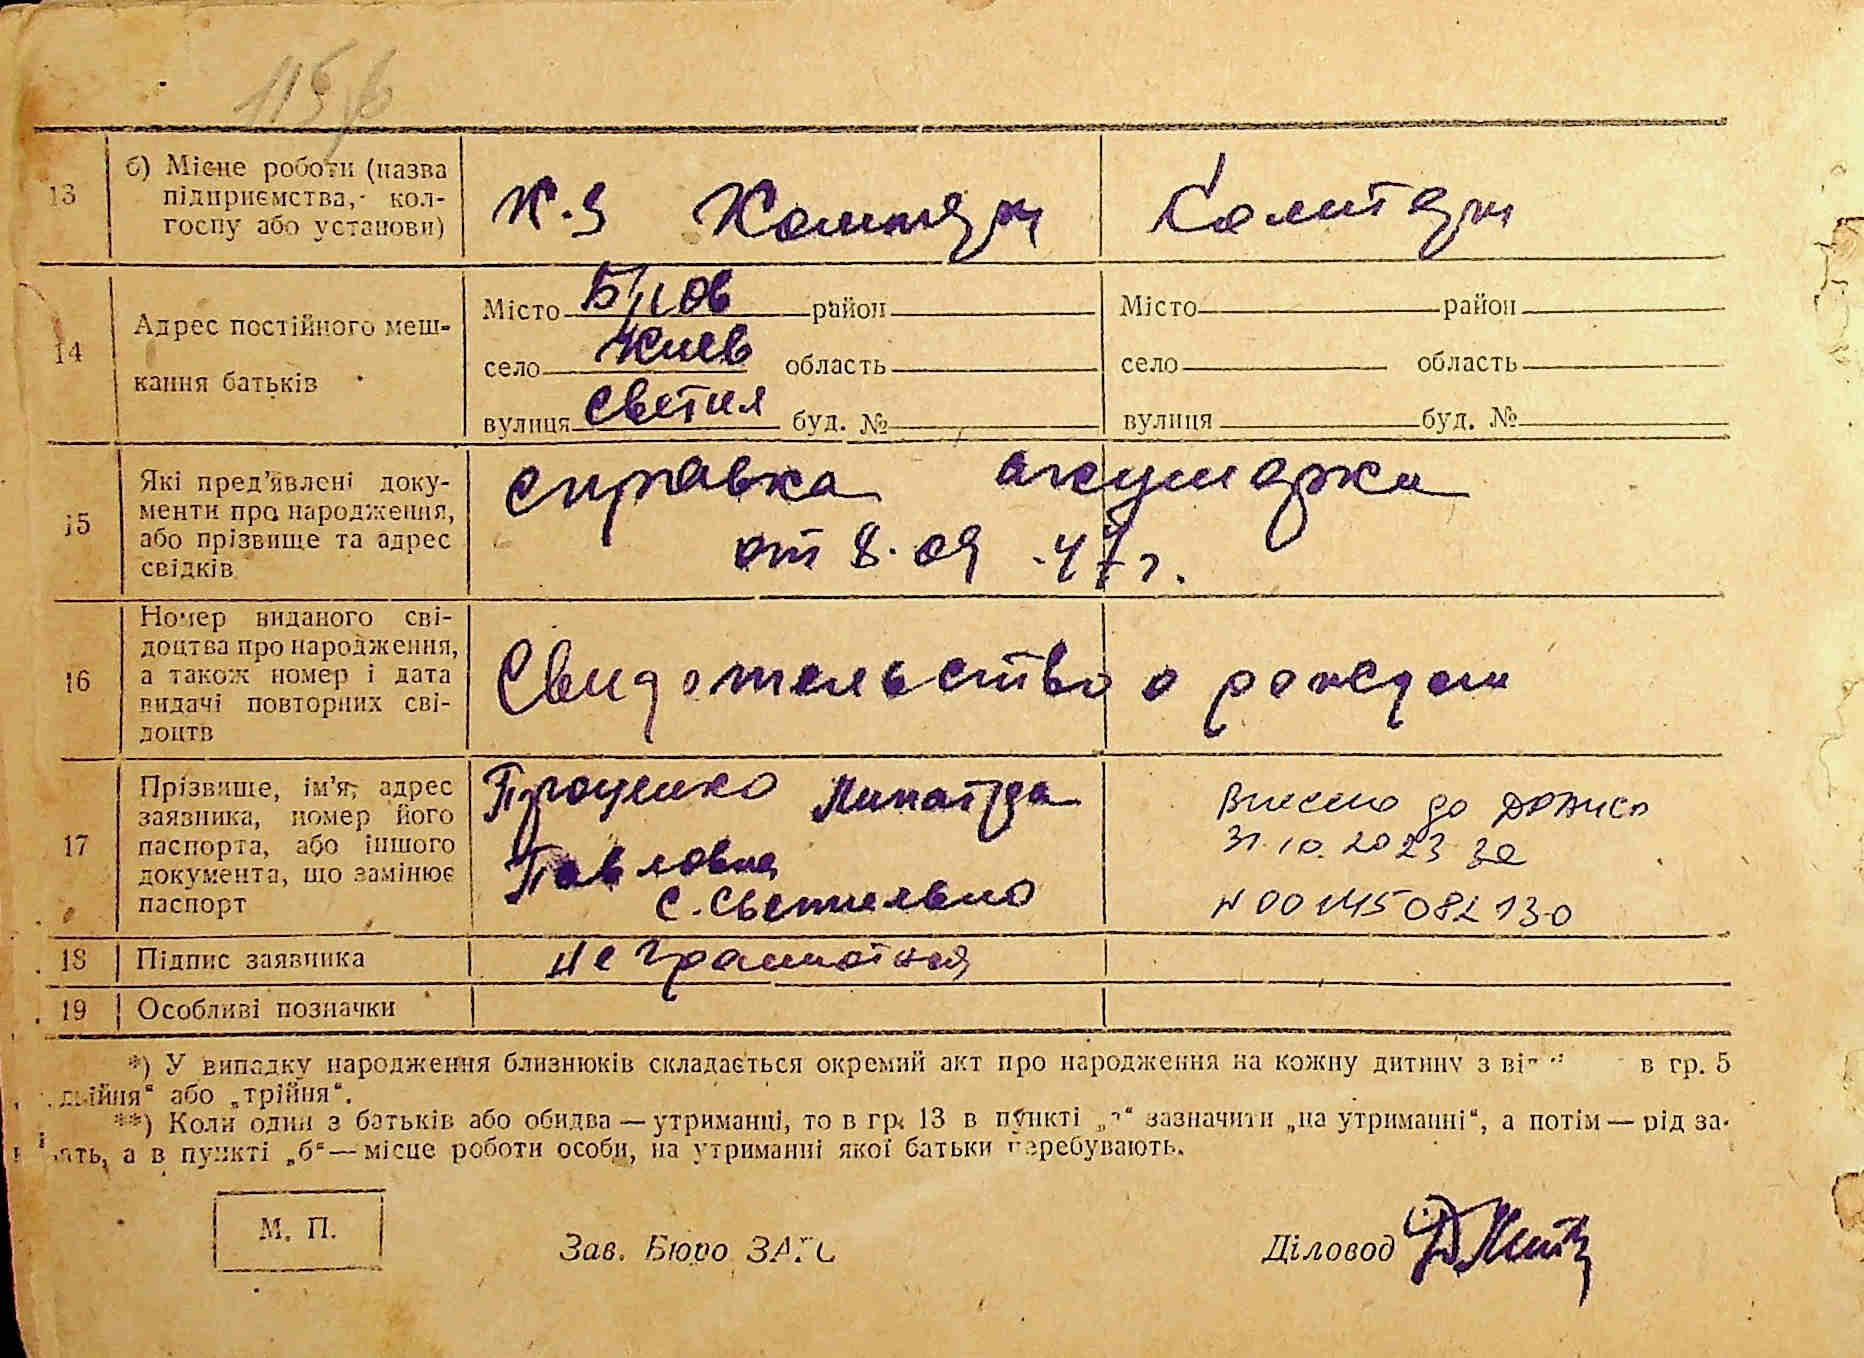 115
13
б) Місце роботи (назва
підприємства, кол-
госпу або установи)
К.З
14
Адрес постійного меш-
кання батьків
Місто район
село Киев область
вулиця буд. №
Місто район
село область
вулиця буд. №
15
Які пред'явлені доку-
менти про народження,
або прізвище та адрес
свідків
справка акушарки
от 8.09.47 г.
16
Номер виданого сві-
доцтва про народження,
а також номер і дата
видачі повторних сві-
доцтв
Свидотельство о рождени
17
Прізвище, ім'я, адрес
заявника, номер його
паспорта, або іншого
документа, що замінює
паспорт
Проценко
Павловна
с. Светельно
Внесено до ДРАЦСГ
31.10.2023 за
N 00145082130
18
Підпис заявника
не грамотная
19
Особливі позначки
*) У випадку народження близнюків складається окремий акт про народження на кожну дитину з в гр. 5
„двійня“ або „трійня“.
**) Коли один з батьків або обидва — утриманці, то в гр. 13 в пункті „а“ зазначити „на утриманні“, а потім — рід за-
нять, а в пункті „б“ — місце роботи особи, на утриманні якої батьки перебувають.
М. П.
Зав. Бюро ЗАГС
Діловод